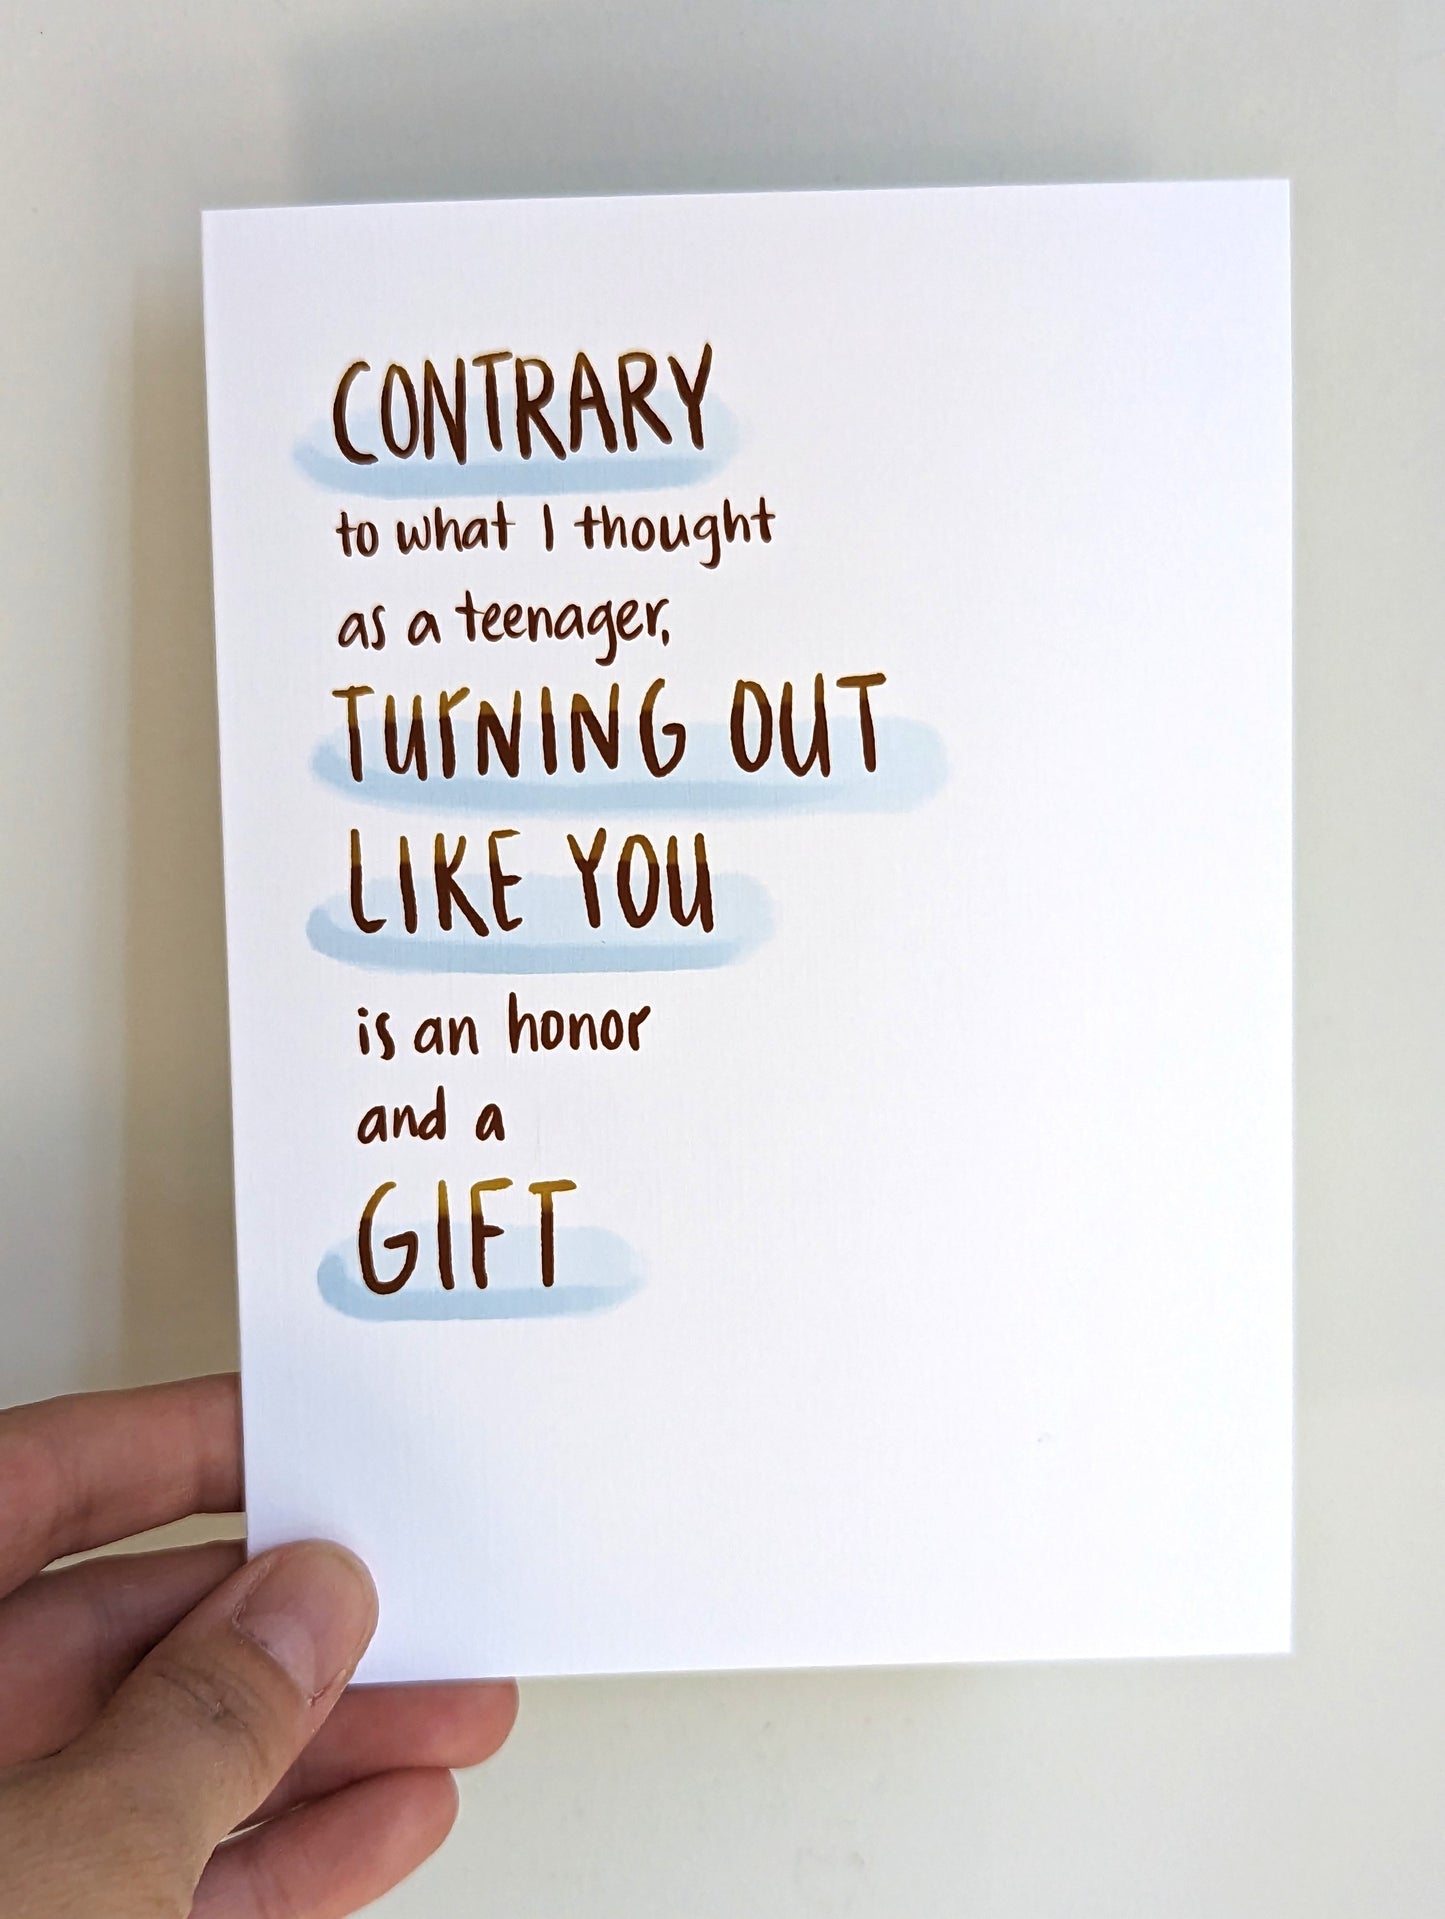 CONTRARY
to what I thought
as a teenager,
TURNING OUT
LIKE YOU
is an honor
and a
GIFT